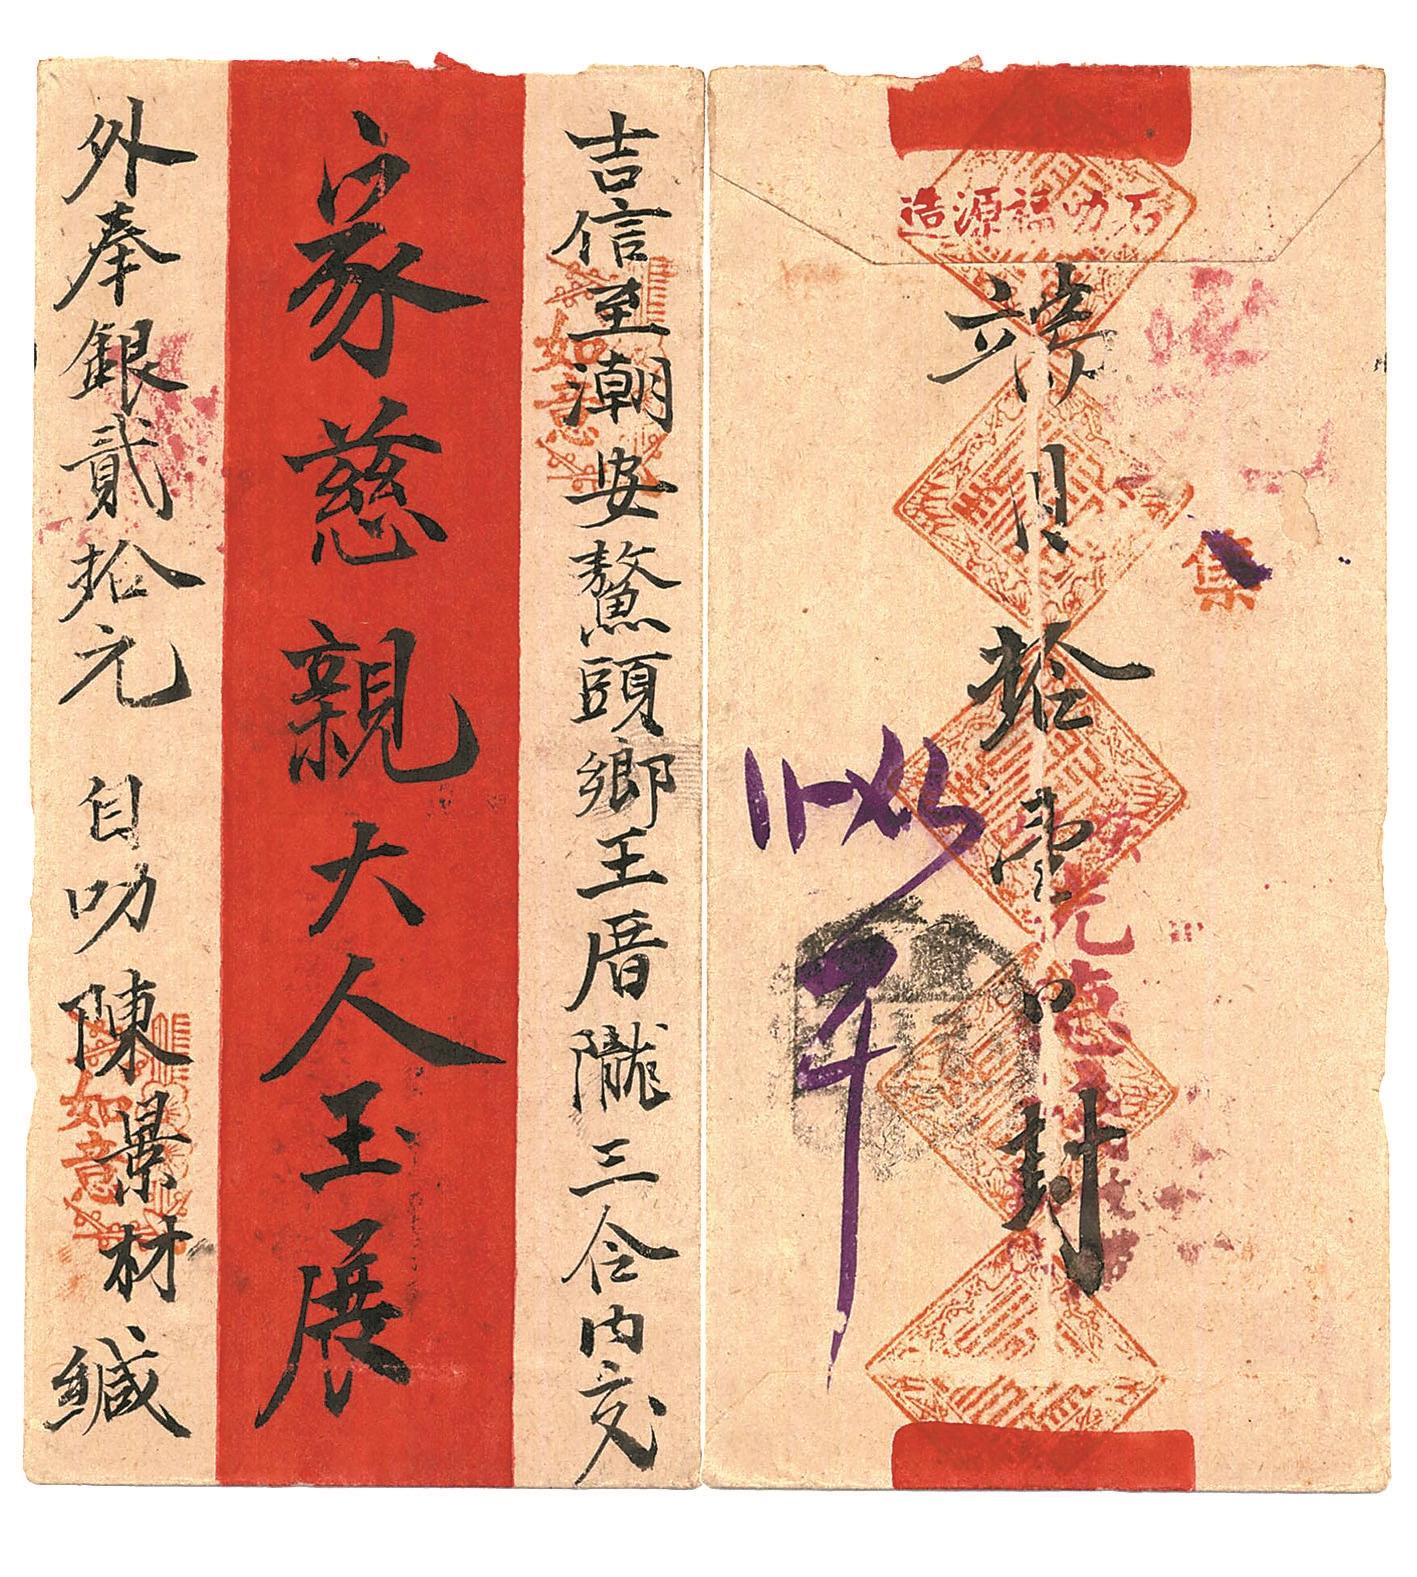 吉信至潮安鰲頭鄉王厝隴三合內交
家慈親大人玉展
外奉銀貳拾元 自叻陳景材緘
如意
如意
石叻福源造
拾壹
封
集